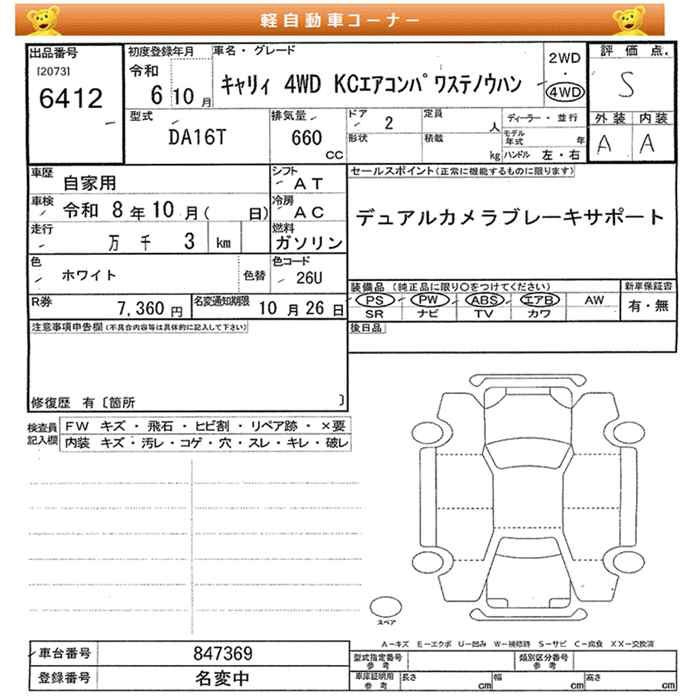 軽自動車コーナー
出品番号
[2073]
6412
初度登録年月
令和
6 10 月
車名・グレード
キャリィ 4WD KCエアコンパ ワステノウハン
2WD
・
4WD
評価点.
S
外装 内装
A A
型式
DA16T
排気量
660
CC
ドア
2
形状
定員
人
積載
kg
ディーラー・並行
モデル年式
年
ハンドル 左・右
車歴
自家用
シフト
AT
車検
令和 8 年 10 月( 日)
冷房
AC
走行
万 千 3 km
燃料
ガソリン
色
ホワイト
色替
色コード
26U
R券
7,360 円
名変通知期限
10 月 26 日
セールスポイント(正常に機能するものに限ります)
デュアルカメラブレーキサポート
装備品 (純正品に限り○をつけてください)
新車保証書
PS PW ABS エアB AW
有・無
SR ナビ TV カワ
後日品
注意事項申告欄(不具合内容等は具体的に記入して下さい)
修復歴 有〔箇所 〕
検査員記入欄
FW キズ・飛石・ヒビ割・リペア跡・×要
内装 キズ・汚レ・コゲ・穴・スレ・キレ・破レ
スペア
A-キズ E-エクボ U-凹み W-補修跡 S-サビ C-腐食 XX-交換済
車台番号
847369
登録番号
名変中
型式指定番号
参考
類別区分番号
参考
車庫証明用
参考
長さ
cm
幅
cm
高さ
cm